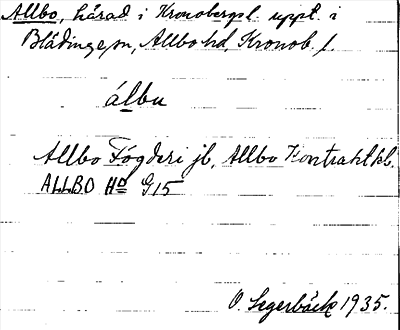 Allbo, härad i Kronobergsl. uppt. i
Blädinge sn, Allbo hd, Kronob. l.
álbu
Allbo Fögderi jb, Allbo Kontrakt kb.
ALLBO Hd G15
O. Segerbäck 1935.